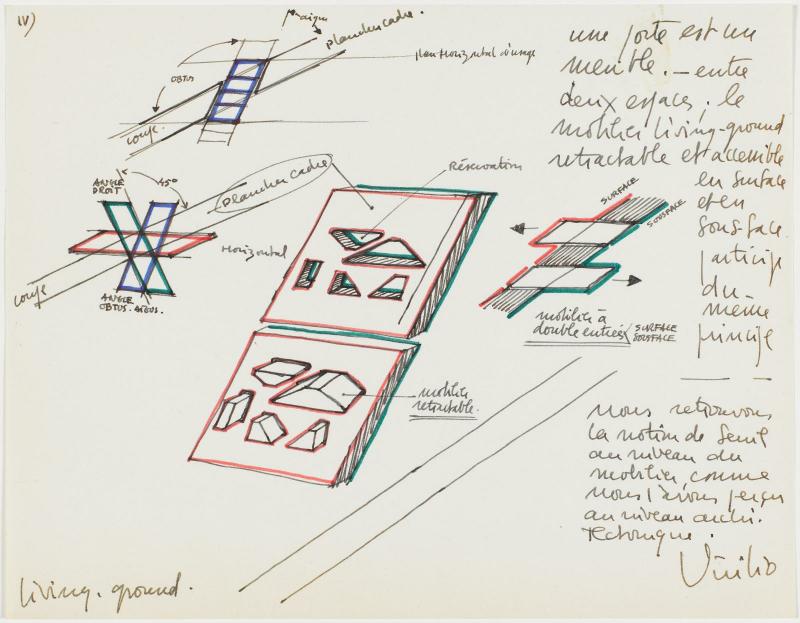 IV)
∠ aigu
plancher cadre.
plan Horizontal d'usage
OBTUS
coupe.
une porte est un
meuble. — entre
deux espaces, le
mobilier living-ground
retractable et accessible
en surface
et en
sous-face.
participe
du-
même
principe
ANGLE
DROIT
45°
plancher cadre
Réservation
SURFACE
SOUSFACE
Horizontal
coupe
ANGLE
OBTUS. AIGUS.
mobilier à
double entrées
SURFACE
SOUSFACE
mobilier
retractable.
nous retrouvons
la notion de seuil
au niveau du
mobilier, comme
nous l'avons perçu
au niveau archi-
tectonique.
Virilio
living. ground.